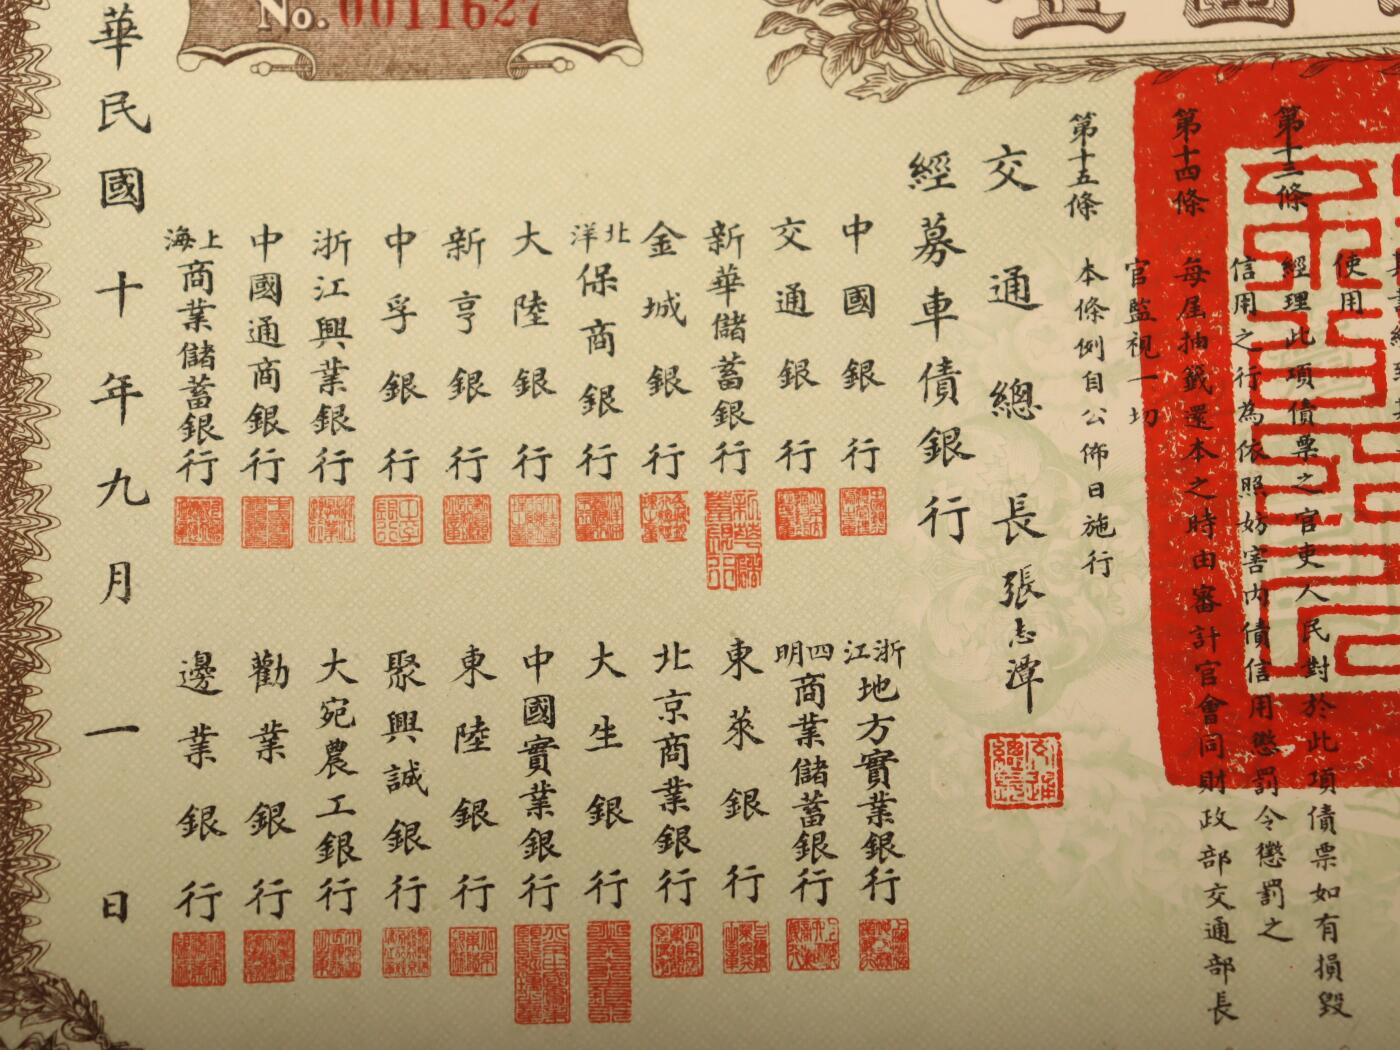 No. 0011627
使用
經理此項債票之官吏人民對於此項債票如有損毀
信用之行為依照妨害內債信用懲罰令懲罰之
第十三條
第十四條
每屆抽籤還本之時由審計官會同財政部交通部長
官監視一切
第十五條
本條例自公佈日施行
交通總長張志潭
經募車債銀行
中國銀行
交通銀行
新華儲蓄銀行
金城銀行
北洋保商銀行
大陸銀行
新亨銀行
中孚銀行
浙江興業銀行
中國通商銀行
上海商業儲蓄銀行
浙江地方實業銀行
四明商業儲蓄銀行
東萊銀行
北京商業銀行
大生銀行
中國實業銀行
東陸銀行
聚興誠銀行
大宛農工銀行
勸業銀行
邊業銀行
華民國十年九月一日